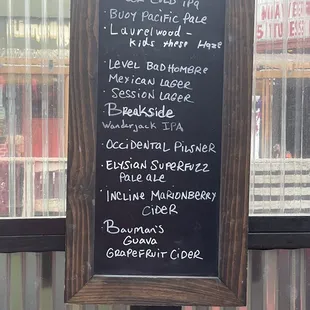 COLD IPA
· BUOY PACIFIC PALE
· LAURELWOOD -
KIDS THESE HAZE
· LEVEL BAD HOMBRE
MEXICAN LAGER
· SESSION LAGER
· BREAKSIDE
WANDERJACK IPA
· OCCIDENTAL PILSNER
· ELYSIAN SUPERFUZZ
PALE ALE
· INCLINE MARIONBERRY
CIDER
· BAUMAN'S
GUAVA
GRAPEFRUIT CIDER